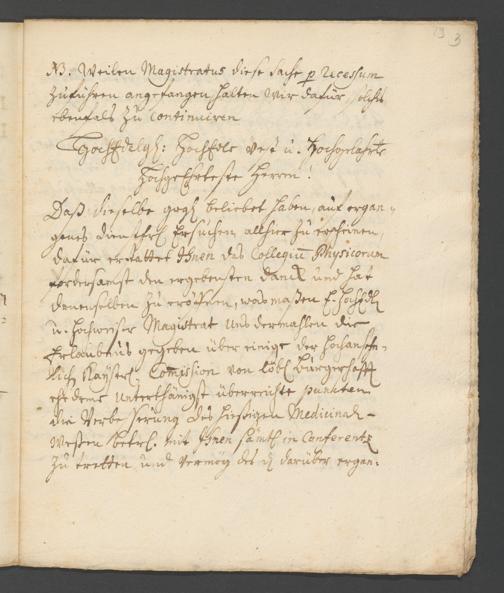 13 3
NB. Weilen Magistratus diese Sache p Recessum
zuführen angefangen halten wir dafür, solches
ebenfals zu Continuiren
HochEdelgb: HochEdle Vest u. Hochgelahrte
Hochgeehrteste Herren!
Daß dieselbe beliebet haben, auf ergan-
genes dienstl. Ersuchen allhier zu erscheinen,
dafür erstattet Ihnen das Collegium Physicorum
vordersamst den ergebensten Danck und hat
denenselben zu eröffnen, was maßen E. HochEdl
u. Hochweiser Magistrat uns dermahlen die
Erlaubnus gegeben über einige der hochansehn-
lich Kayserl. Comission von löbl. Bürgerschafft
ehedeme unterthänigst überreichte puncten
die Verbeßerung des hiesigen Medicinal-
Wesens betrl. mit Ihnen sämtl. in Conferentz
zu tretten und vermög des darüber ergan: